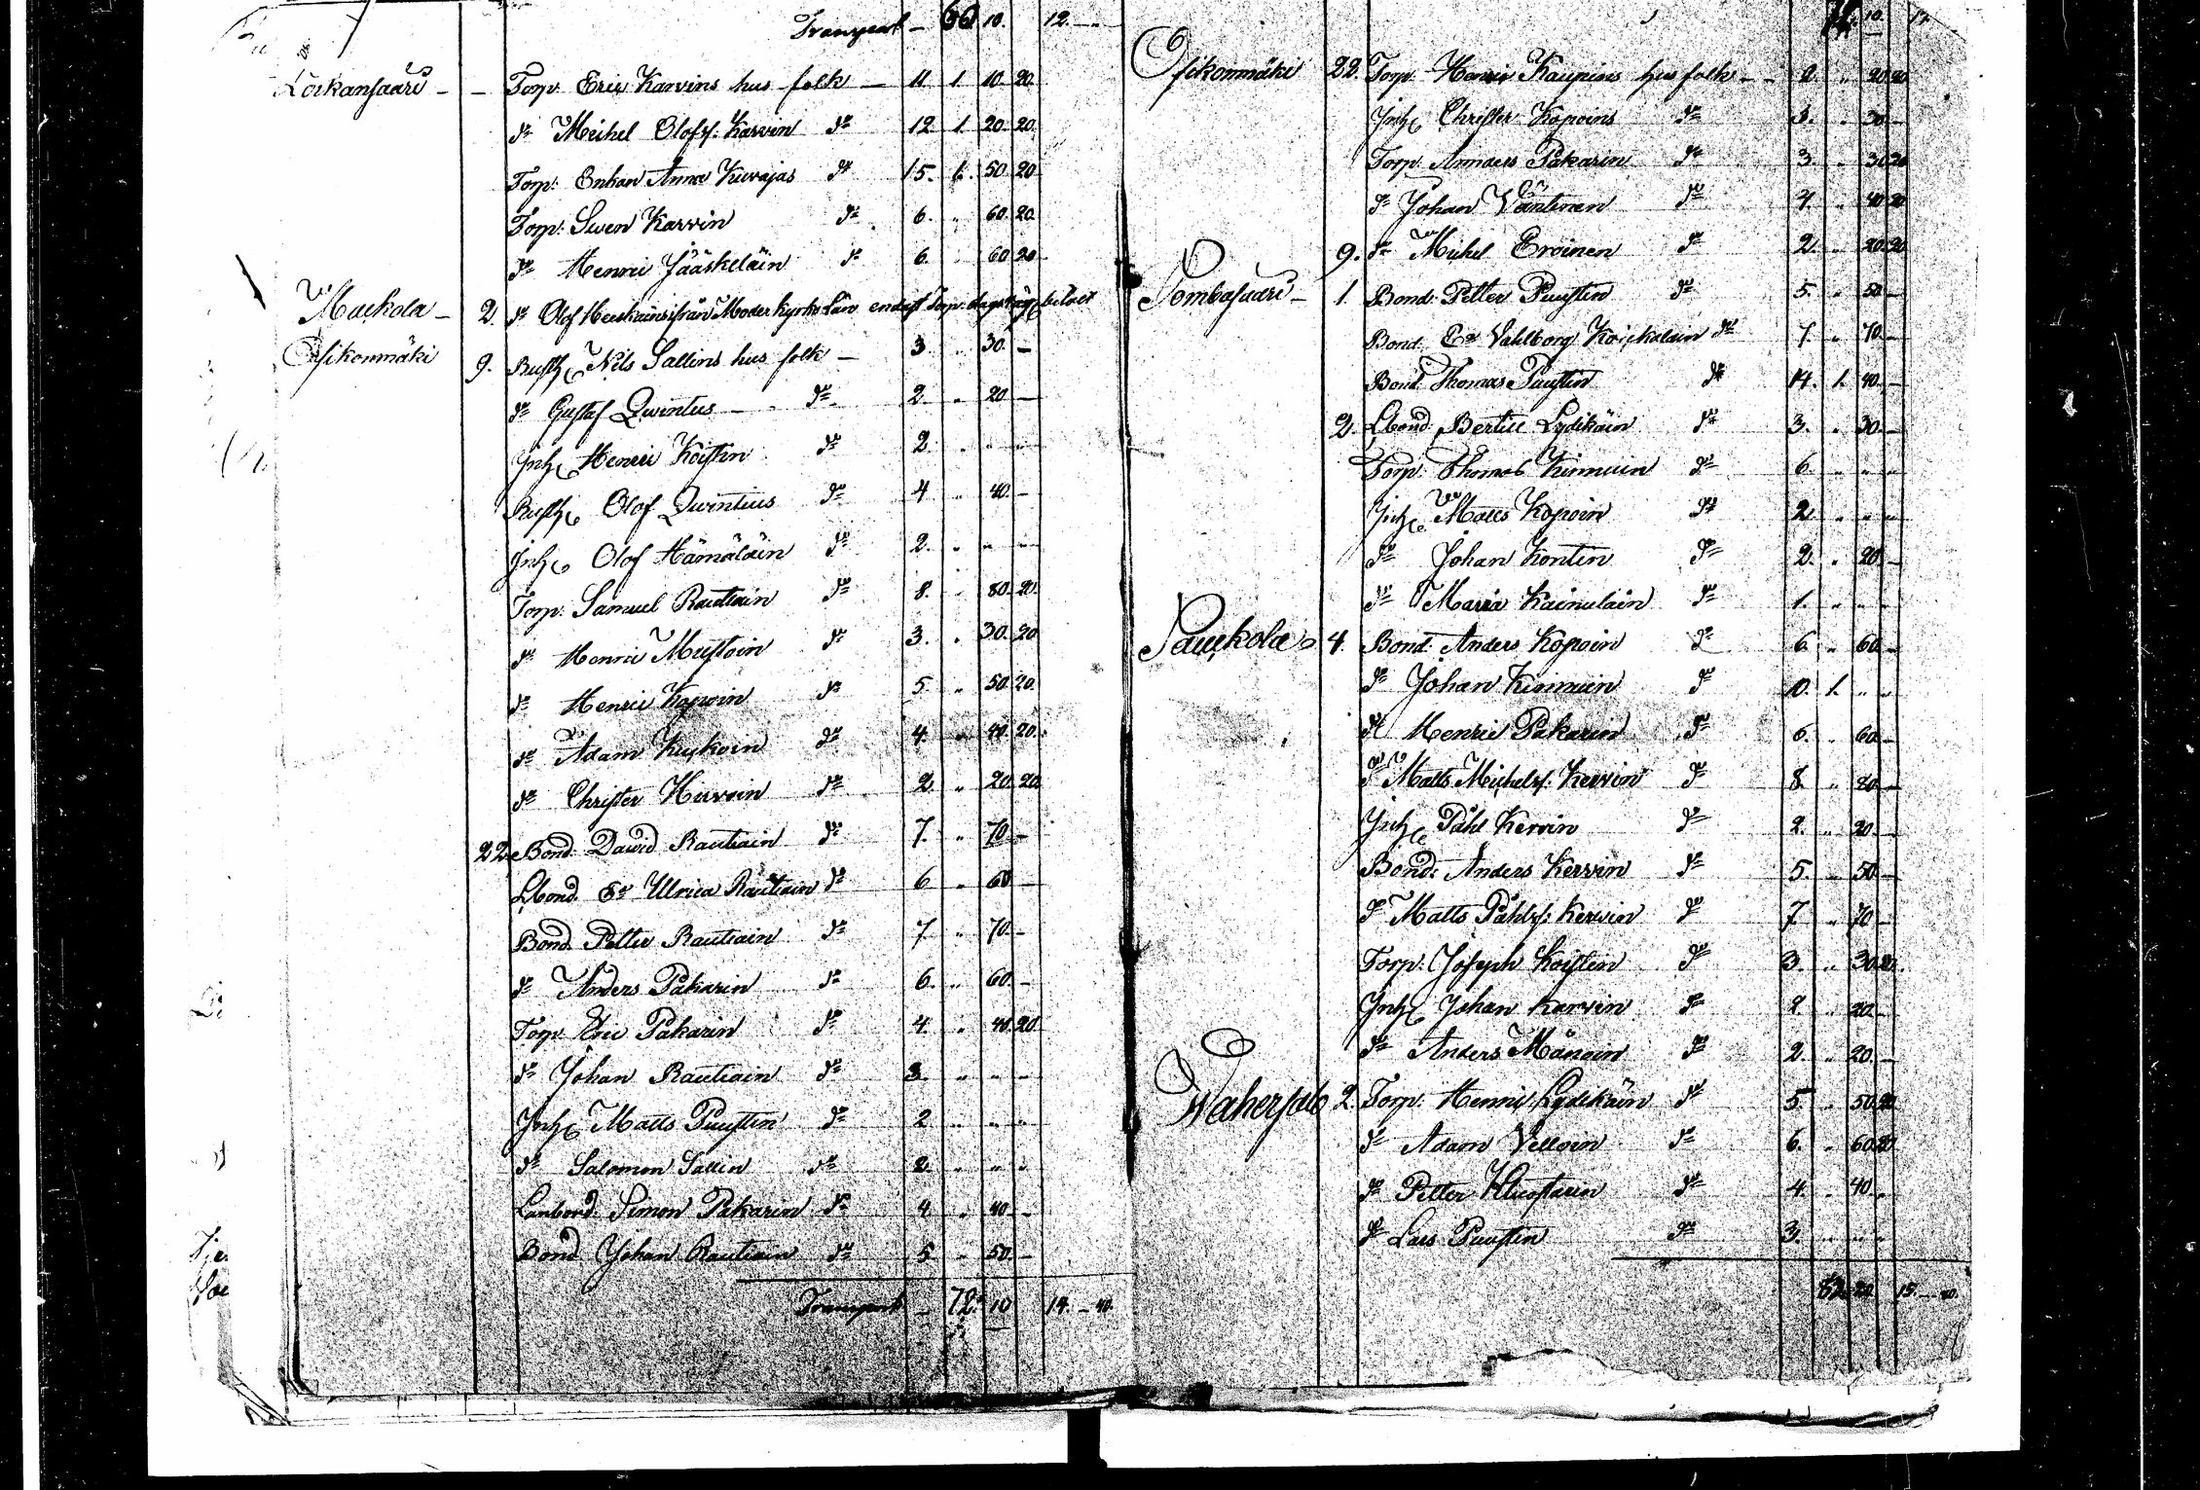 Transport — 66 10. 12. — „
Loikansaari — — Torp. Eric Karvins hus folk — 11 1. 10. 20.
dº Michel Olofs: Karvin dº 12 1. 20. 20.
Torp: Enkan Anna Kuvajas dº 15. 1. 50. 20.
Torp: Swen Karvin dº 6. „ 60. 20.
dº Henric Jääskeläin dº 6. „ 60. 20.
Mackola — 2. dº Olof ifrån Moderkyrko Län endast Torp. betalt
Osikonmäki 9. Rusth: Nils Sallins hus folk — 3. „ 30. —
dº Gustaf Qwintus — dº 2. „ 20. —
Inh: Henric Koistin dº 2. „ „ „
Rusth: Olof Qwintus dº 4 „ 40. —
Inh: Olof Hämäläin dº 2. „ „ „
Torp: Samuel Rautiain dº 8. „ 80. 20.
dº Henric Mustoin dº 3. „ 30. 20
dº Henric Kopoin dº 5. „ 50. 20.
dº Adam dº 4. „ 40. 20.
dº Christer Hirvoin dº 2. „ 20. 20.
22. Bond. David Rautiain dº 7. „ 70. —
Lbond. Ea Ulrica Rautiain dº 6 „ 60 —
Bond. Petter Rautiain dº 7. „ 70. —
dº Anders Pakarin dº 6. „ 60. —
Torp. Eric Pakarin dº 4. „ 40. 20.
dº Johan Rautiain dº 3. „ „ „
Inh: Matts Puustin dº 2 „ „ „
dº Salomon Sallin dº 2. „ „ „
Lanbond: Simon Pakarin dº 4. „ 40. —
Bond. Johan Rautiain dº 5 „ 50. —
Transport — 72. 10 14. — 40.
10. 1
Osikonmäki 22. Torp. Henric Kaupins hus folk — — 2. „ 20. 20
Inh: Christer Kopoins dº 3. „ 30. —
Torp. Anders Pakarin dº 3 „ 30. 20
dº Johan Väntinen dº 4. „ 40. 20
9. dº Michel Eroinen dº 2. „ 20. 20
Pombasaari — 1. Bond. Petter Puustin dº 5. „ 50 —
Bond. Ea Vahlborg dº 7. „ 70. —
Bond. Thomas Puustin dº 14. 1. 40. —
2. Lbond. Bertill Lydikäin dº 3. „ 30. —
Torp. Thomas Kinnuin dº 6. „ „ „
Inh: Matts Kopoin dº 2 „ „ „
dº Johan Kontin dº 2. „ 20. —
dº Maria Kainulain dº 1. „ „ „
Pauckola 4. Bond. Anders Kopoin dº 6. „ 60. —
dº Johan Kinnuin dº 10. 1. „ „
dº Henric Pakarin dº 6. „ 60. —
dº Matts Michels: Kervin dº 8. „ 80. —
Inh: Påhl Kervin dº 2. „ 20. —
Bond: Anders Kervin dº 5. „ 50. —
dº Matts Påhls: Kervin dº 7 „ 70 —
Torp: Joseph Koistin dº 3. „ 30. 20.
Inh: Johan Karvin dº 2 „ 20. —
dº Anders Mänoin dº 2. „ 20. —
Wahersalo 2. Torp. Henric Lydikäin dº 5. „ 50. 20
dº Adam Velloin dº 6. „ 60. 20
dº Petter dº 4. „ 40. „
dº Lars Puustin dº 3. „ „ „
82 20. 15. — 40.